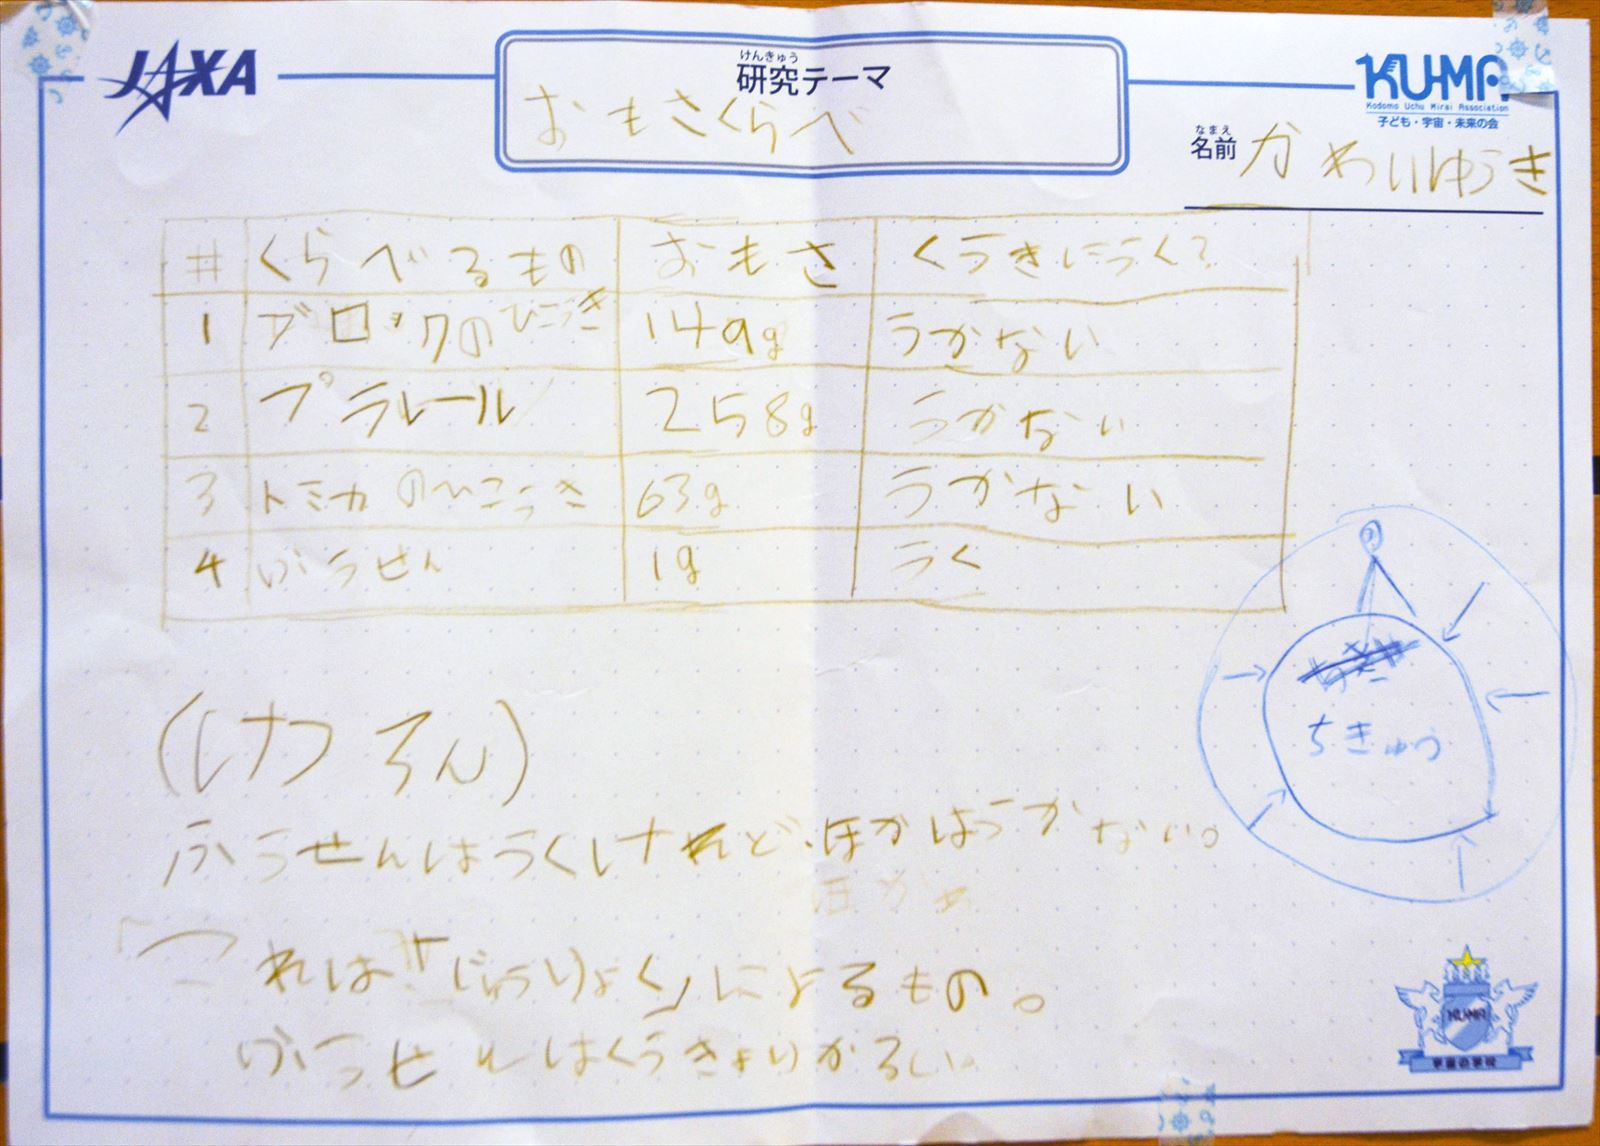 JAXA
けんきゅう
研究テーマ
おもさくらべ
KU-MA
Kodomo Uchu Mirai Association
子ども・宇宙・未来の会
なまえ
名前 かわいゆうき
# くらべるもの おもさ くうきにうく?
1 ブロックのひこうき 149g うかない
2 プラレール 258g うかない
3 トミカのひこうき 63g うかない
4 ふうせん 1g うく
ちきゅう
(けつろん)
ふうせんはうくけれど、ほかはうかない。
これは「じゅうりょく」によるもの。
ふうせんはくうきよりかるい
KU-MA
宇宙の学校